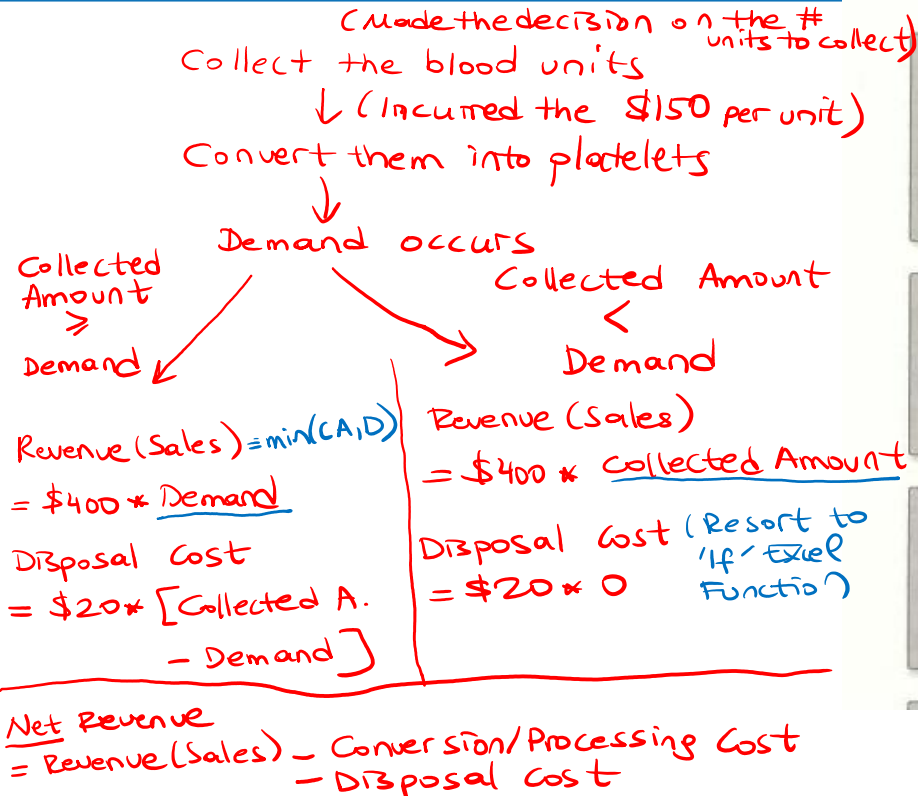 (Made the decision on the #
units to collect)
Collect the blood units
↓ (Incurred the $150 per unit)
Convert them into platelets
↓
Demand occurs
Collected
Amount
≥
Demand
Collected Amount
<
Demand
Revenue (Sales) = min(CA,D)
= $400 * Demand
Disposal Cost
= $20 * [Collected A.
- Demand]
Revenue (Sales)
= $400 * Collected Amount
Disposal Cost (Resort to
'If' Excel
Function)
= $20 * 0
Net Revenue
= Revenue (Sales) - Conversion/Processing Cost
- Disposal Cost